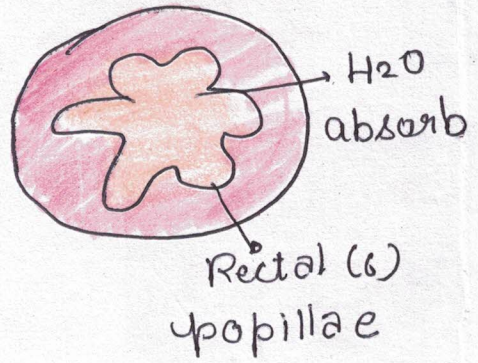 H2O
absorb
Rectal (6)
popillae